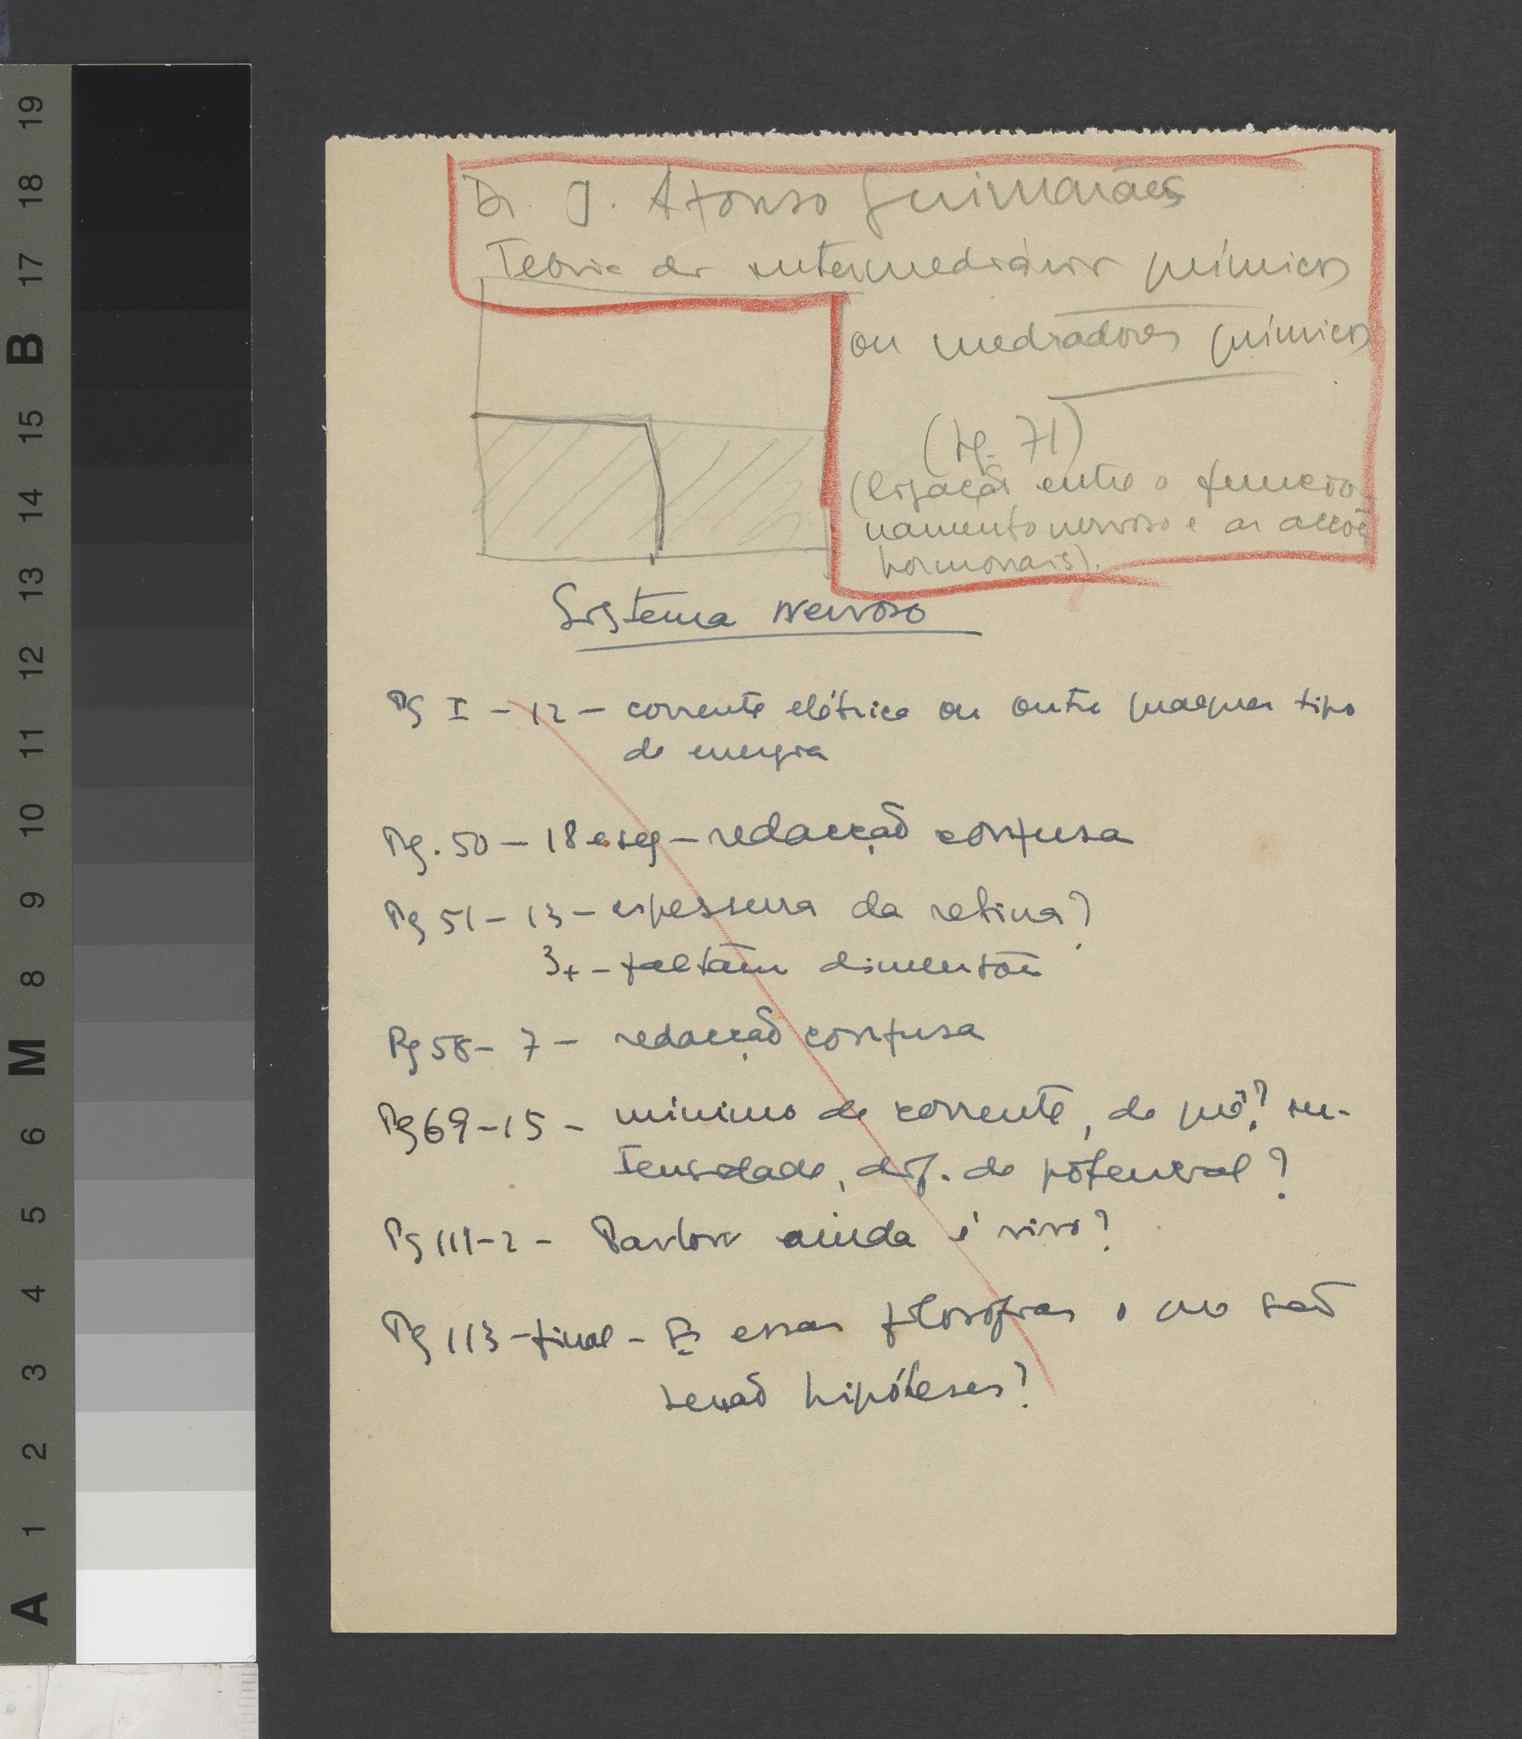 Dr. J. Afonso Guimarães
Teoria dos intermediários químicos
ou mediadores químicos
(Pg. 71)
(ligação entre o funcio-
namento nervoso e as acções
hormonais).
Sistema nervoso
Pg I - 12 - corrente elétrica ou outro qualquer tipo
de energia
Pg. 50 - 18 e seg - redacção confusa
Pg 51 - 13 - espessura da retina?
3+ - faltam dimensões
Pg 58 - 7 - redacção confusa
Pg 69 - 15 - mínimo de corrente, de quê? in-
tensidade, dif. de potencial?
Pg 111 - 2 - Pavlov ainda é vivo?
Pg 113 - final - E essas filosofias o que são
senão hipóteses?
A 1 2 3 4 5 6 M 8 9 10 11 12 13 14 15 B 17 18 19